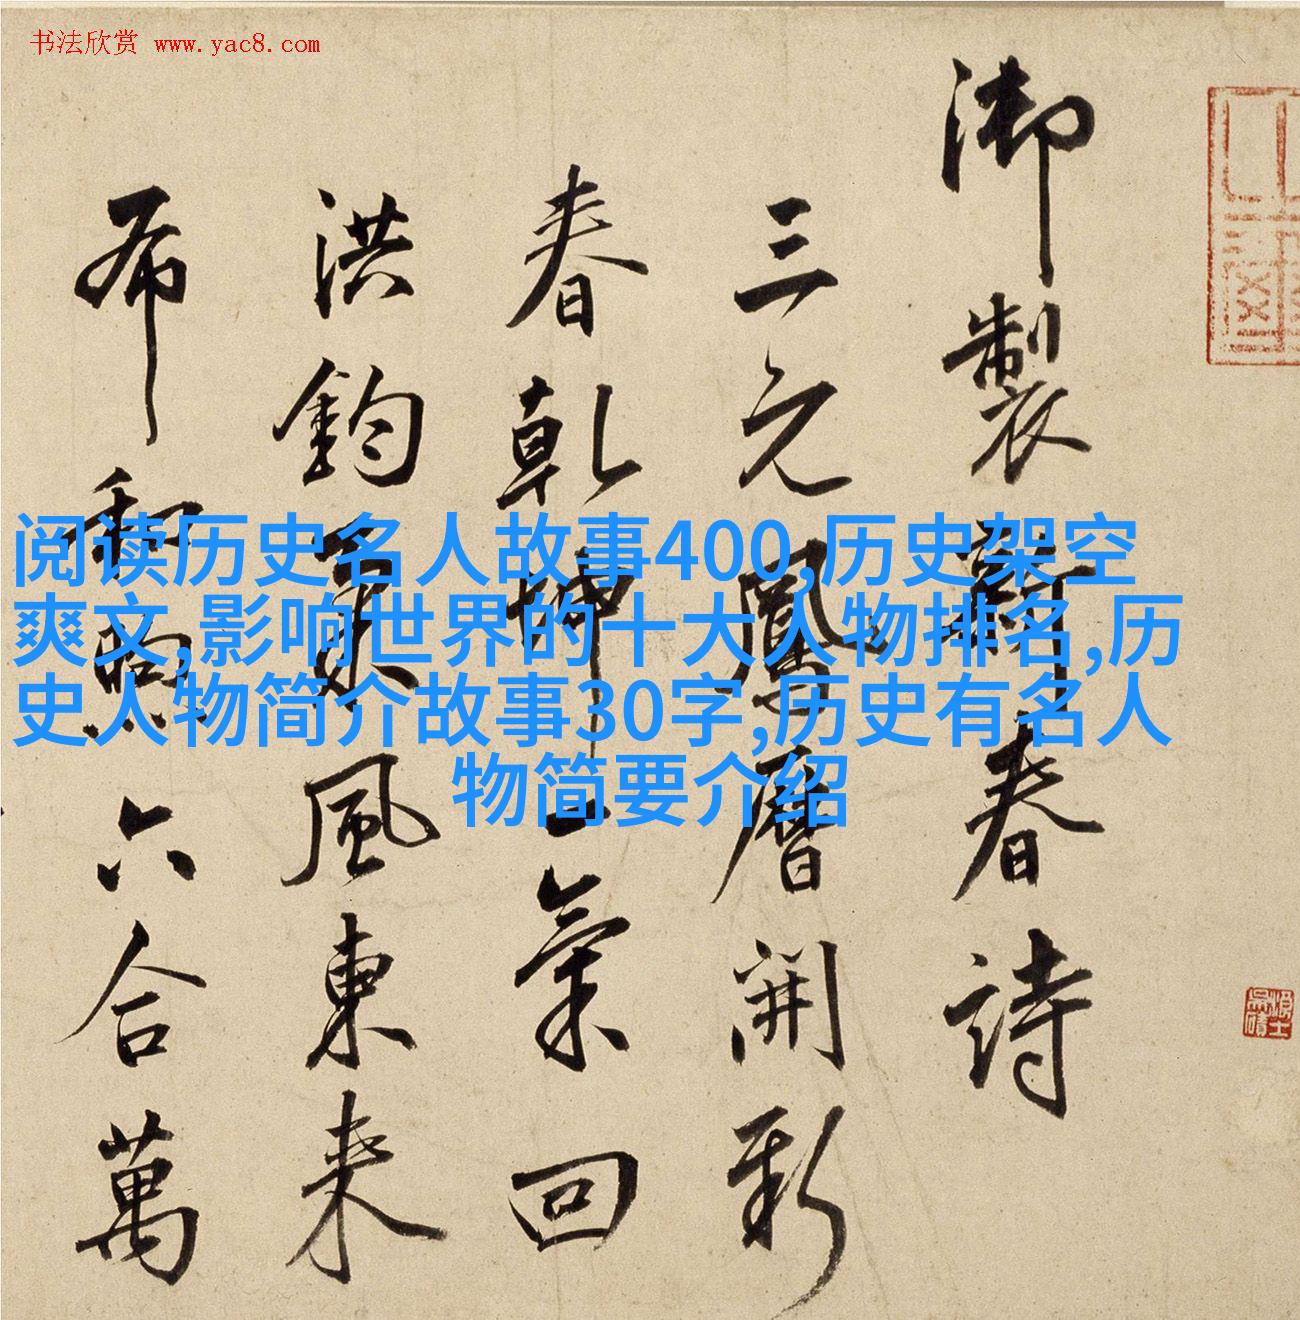 书法欣赏 www.yac8.com
阅读历史名人故事400,历史架空
爽文,影响世界的十大人物排名,历
史人物简介故事30字,历史有名人
物简要介绍
御製新春詩
三元鳳曆開新
春乾坤一氣回
洪鈞風東来
布和煦六合萬